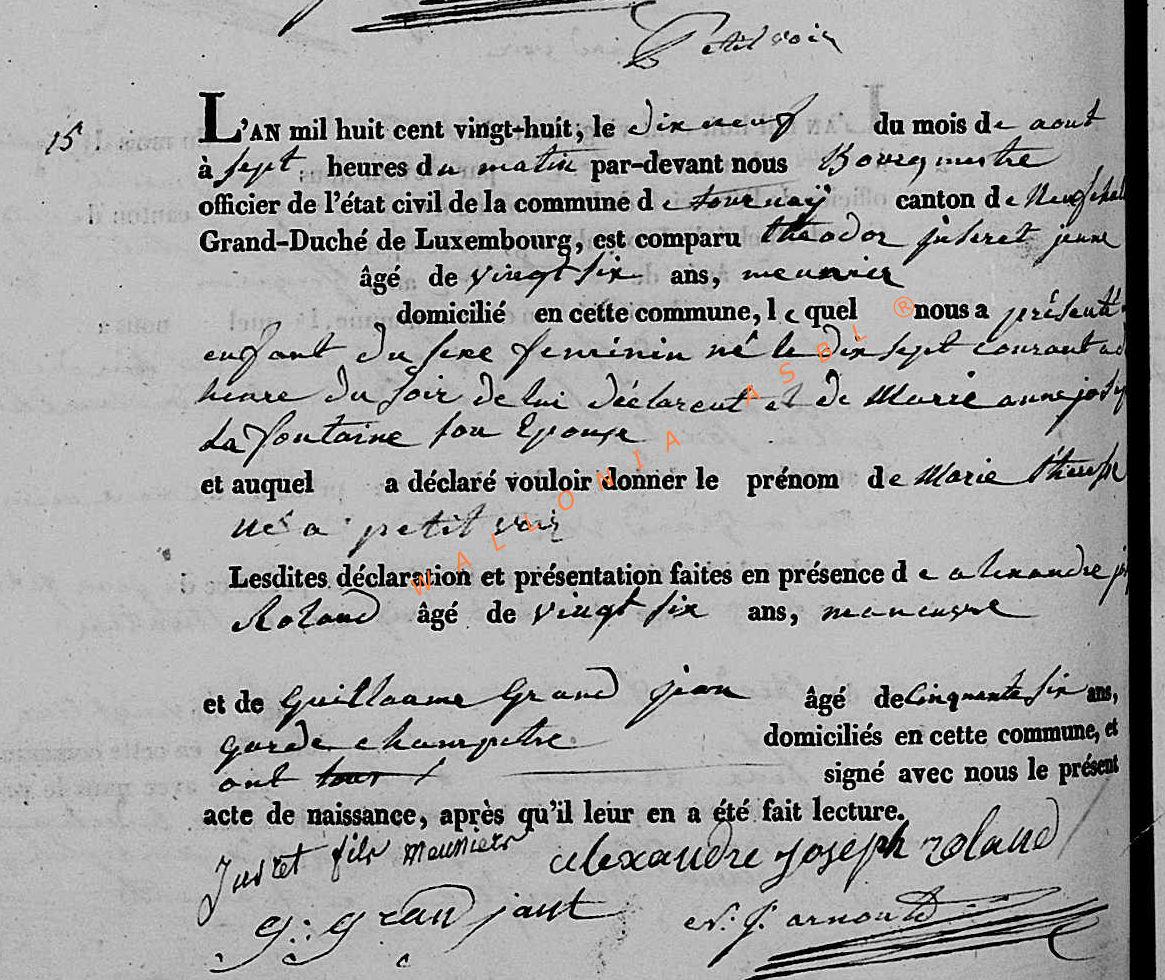 Petit voir
15
L'AN mil huit cent vingt-huit, le dix neuf du mois de aout
à sept heures du matin par-devant nous Bourgmestre
officier de l'état civil de la commune de tournay canton de Neufchat
Grand-Duché de Luxembourg, est comparu théodor juseret jeune
âgé de vingt six ans, meunier
domicilié en cette commune, lequel nous a présenté
enfant du sexe feminin né le dix sept courant a
heure du soir de lui déclarent et de Marie anne josep
La fontaine son Epouse
et auquel a déclaré vouloir donner le prénom de Marie
né a petit voir
Lesdites déclaration et présentation faites en présence de alexandre jo
Roland âgé de vingt six ans, maneuvre
et de Guillaume Grand jean âgé de Cinquante six ans,
garde champetre domiciliés en cette commune, et
ont tous signé avec nous le présent
acte de naissance, après qu'il leur en a été fait lecture.
fils Meunier alexandre Joseph roland
g: grand jant N. J. arnould
WALLONIA ASBL ®